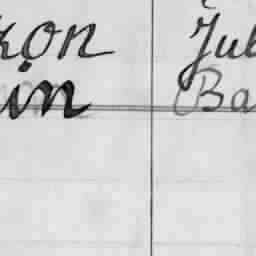 kon Jul
in Ba